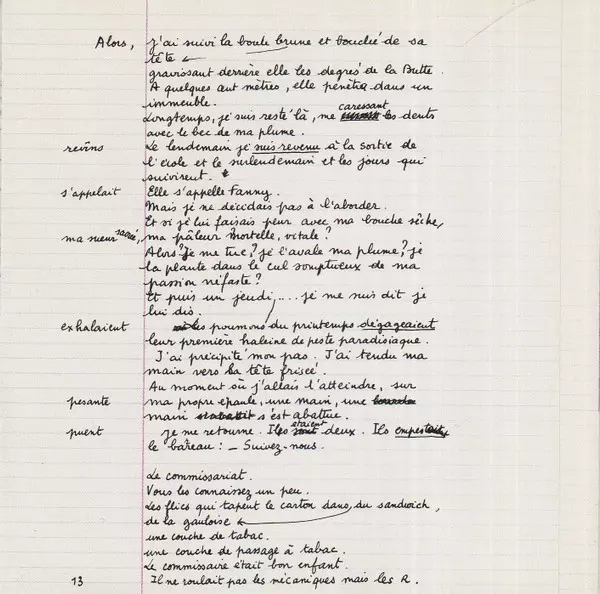 Alors, j'ai suivi la boule brune et bouclée de sa
tête
gravissant derrière elle les degrés de la Butte.
A quelques cent mètres, elle pénétra dans un
immeuble.
caressant
Longtemps, je suis resté là, me les dents
avec le bec de ma plume.
revins Le lendemain je suis revenu à la sortie de
l'école et le surlendemain et les jours qui
suivirent.
s'appelait Elle s'appelle Fanny.
Mais je ne décidais pas à l'aborder.
Et si je lui faisais peur avec ma bouche sèche,
ma sueur sacrée, ma pâleur mortelle, vitale ?
Alors ? Je me tue, ? je l'avale ma plume, ? je
la plante dans le cul somptueux de ma
passion néfaste ?
Et puis un jeudi, .... je me suis dit je
lui dis.
exhalaient les poumons du printemps dégageaient
leur première haleine de peste paradisiaque.
J'ai précipité mon pas. J'ai tendu ma
main vers la tête frisée.
Au moment où j'allais l'atteindre, sur
pesante ma propre épaule, une main, une
main s'est abattue.
étaient
puent je me retourne. Ils sont deux. Ils empestait
le barreau : _ Suivez-nous.
Le commissariat.
Vous les connaissez un peu.
Les flics qui tapent le carton dans, du sandwich,
de la gauloise
une couche de tabac.
une couche de passage à tabac.
Le commissaire était bon enfant.
13 Il ne roulait pas les mécaniques mais les R.